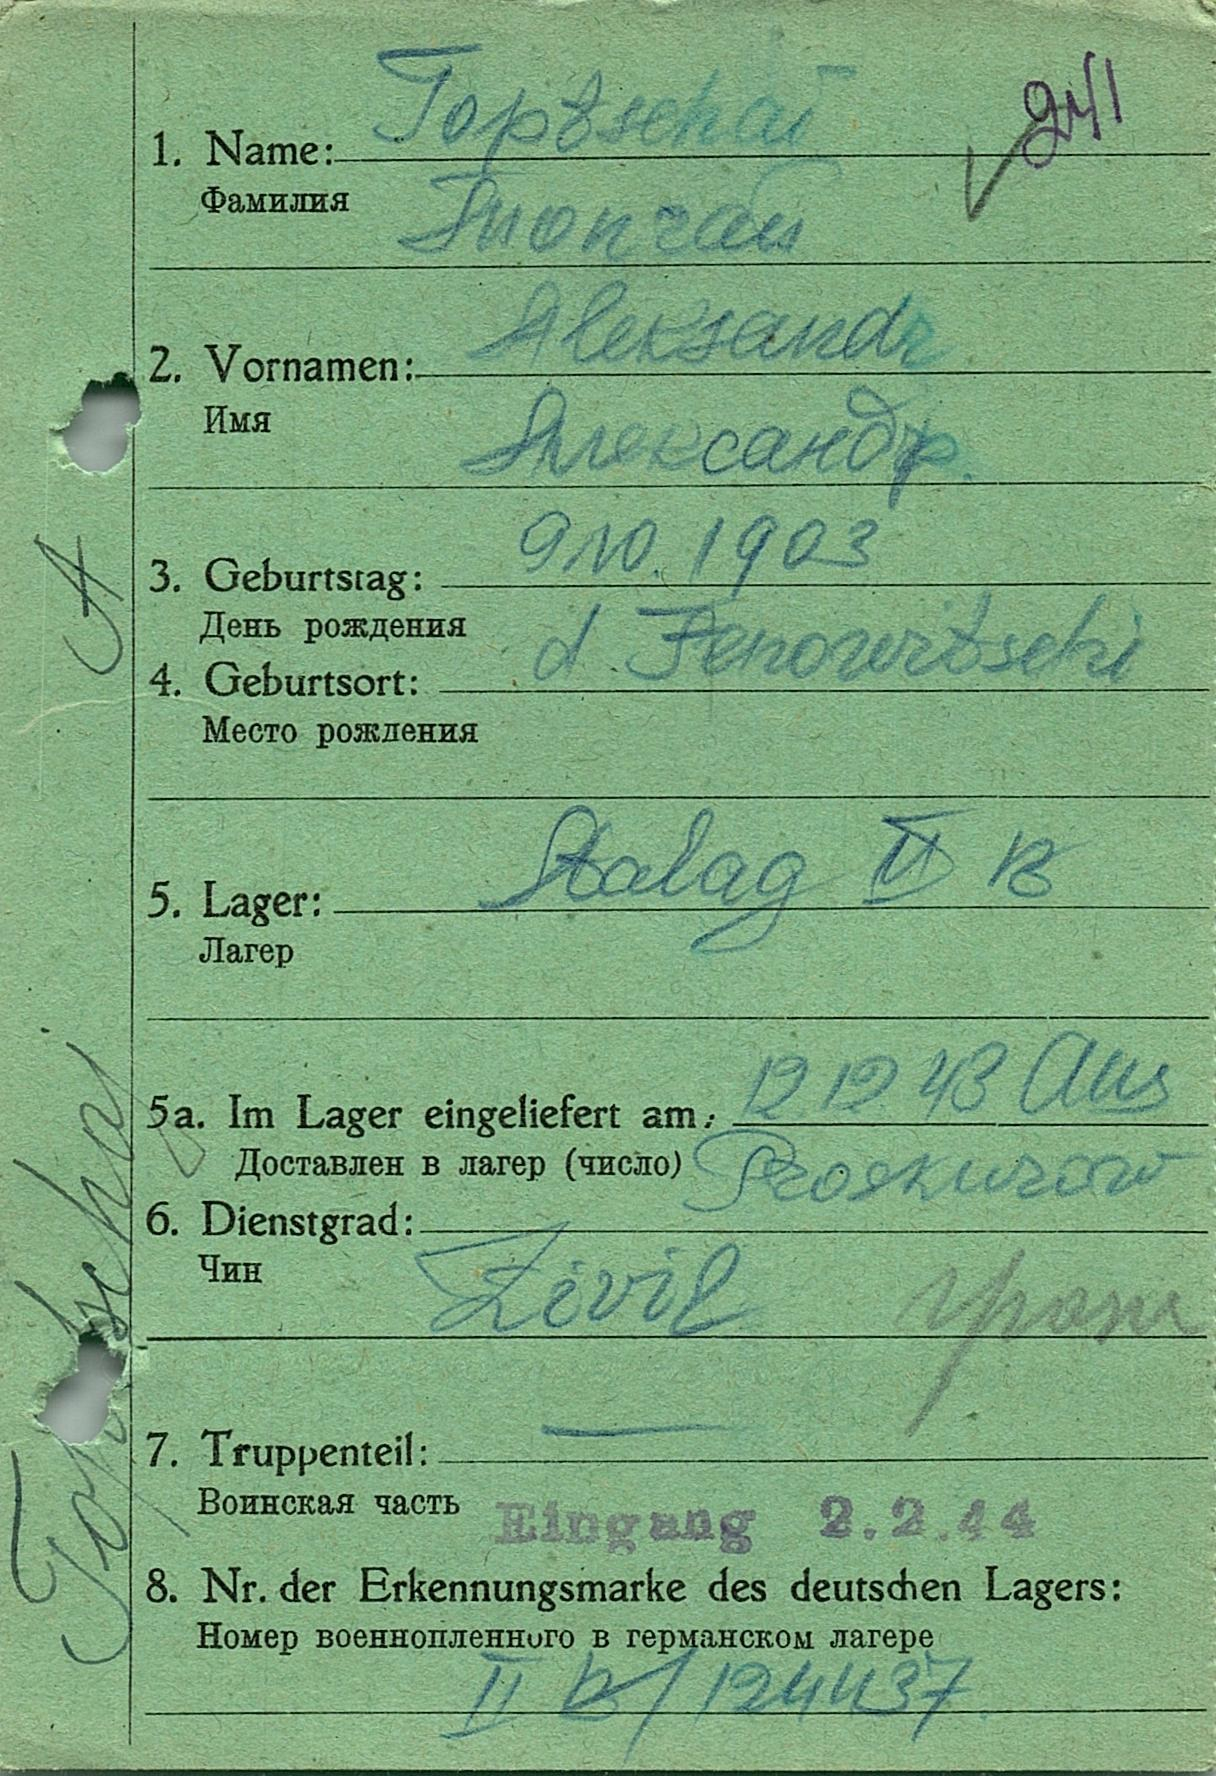 241
1. Name: Toptschai
Фамилия
2. Vornamen: Aleksandr
Имя
Александр.
3. Geburtstag: 9 10. 1903
День рождения
4. Geburtsort: d Zenowitschi
Место рождения
5. Lager: Stalag II B
Лагер
5a. Im Lager eingeliefert am: 12 12 43 Aus
Доставлен в лагер (число) Proskurow
6. Dienstgrad:
Чин Zivil
7. Truppenteil: —
Воинская часть
Eingang 2.2.44
8. Nr. der Erkennungsmarke des deutschen Lagers:
Номер военнопленного в германском лагере
II B/124437.
Toptschai A